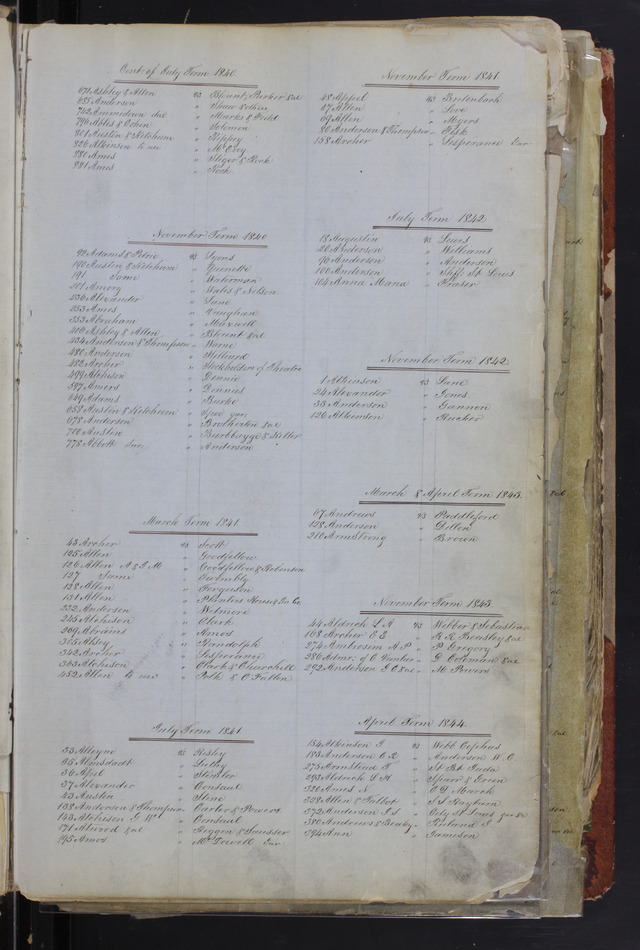 Cont of July Term 1840
671 Ashley & Allen vs Blount, Parker &al
685 Anderson " Shaw &
742 Ammidown &al " Marks & Field
796 Ashes & Cohen " Solomon
801 Austin & Ketchum " Rippey
826 Atkinson to use " McEvoy
880 Ames " Steger & Rook
881 Ames " Rook
November Term 1840
92 Adams & Petrie vs Lyons
190 Austin & Ketchum " Guinette
191 Same " Waterman
201 Amory " Wales & Nelson
230 Alexander " Lane
253 Ames " Vaughan
353 Abraham " Maxwell
410 Ashley & Allen " Blount &al
434 Anderson & Thompson " Warne
480 Anderson " Willard
482 Archer " Stockholders of Theatre
499 Atchison " Dennis
597 Amers " Dennies
649 Adams " Burke
658 Austin & Ketchum "
678 Anderson " Brotherton &al
710 Austin " Burbbayge & Keller
778 Abbott " Anderson
March Term 1841
43 Archer vs Scott
125 Allen " Goodfellow
126 Allen A & J M " Goodfellow & Robinson
127 Same " Twombly
128 Allen " Ferguson
131 Allen " Planters House
232 Anderson " Wetmore
245 Atchison " Clark
269 Abrams " Amos
315 Ashley " Randolph
342 Archer " Lesperance
363 Atchison " Clark & Churchill
452 Allen to use " Polk & C Fallen
July Term 1841
33 Alleyne vs Risley
35 Almsdadt " Luthy
36 Apel " Steitler
37 Alexander " Consaul
43 Austin " Stine
138 Anderson & Thompson " Carter & Powers
143 Atchison G W " Consaul
171 Atwood &al " Heggen &
195 Amos " McDowell Gar
November Term 1841
48 Appel vs Bentenbach
67 Allen " Love
69 Allen " Myers
80 Anderson & Thompson " Fisk
158 Archer " Lesperance Gar
July Term 1842
18 Augustin vs Lewis
20 Anderson " Williams
90 Anderson " Anderson
100 Anderson " Shff St Louis
104 Anna Maria " Frasier
November Term 1842
1 Atkinson vs Lane
24 Alexander " Jones
33 Anderson " Gannon
120 Atkinson " Rucher
March & April Term 1843
67 Andrews vs Paddleford
128 Anderson " Dillon
210 Armstrong " Brown
November Term 1843
44 Aldrich L A vs Webber & Sebastian
108 Archer E E " R R Beasley &al
274 Ambrosim A P " P Gregory
280 Admr of C " D Coleman &al
292 Anderson J C &al " M Powers
April Term 1844
154 Atkinson J vs Webb Cephus
185 Anderson C R " Anderson W C
273 Armstead T " St Bt Juda
293 Aldrich L H " Spear & Green
320 Ames N " C D March
328 Allen & Talbot " J S Rayburn
372 Anderson J S " City St Louis
380 Andrews & Beakey "
394 Ann " Jameson